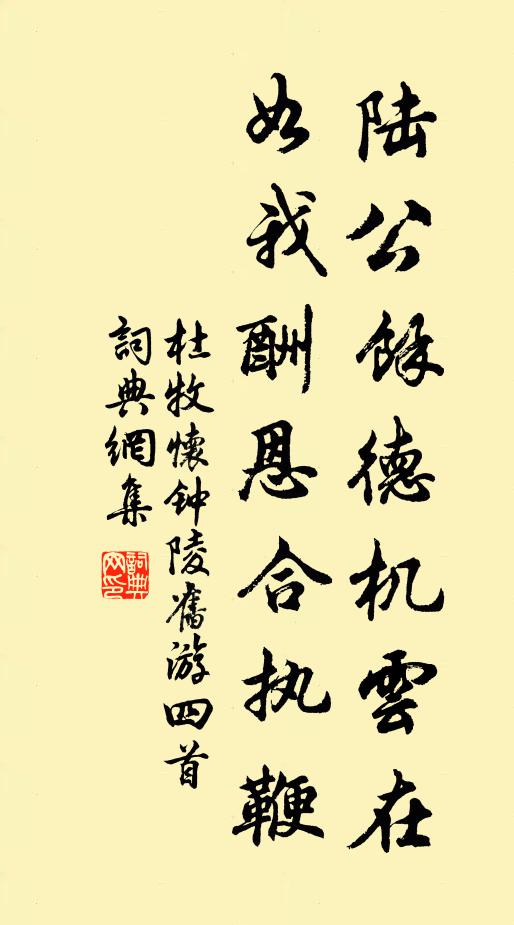 陆公餘德机雲在
如我酬恩合执鞭
杜牧懷钟陵舊游四首
詞典網集
詞典网印